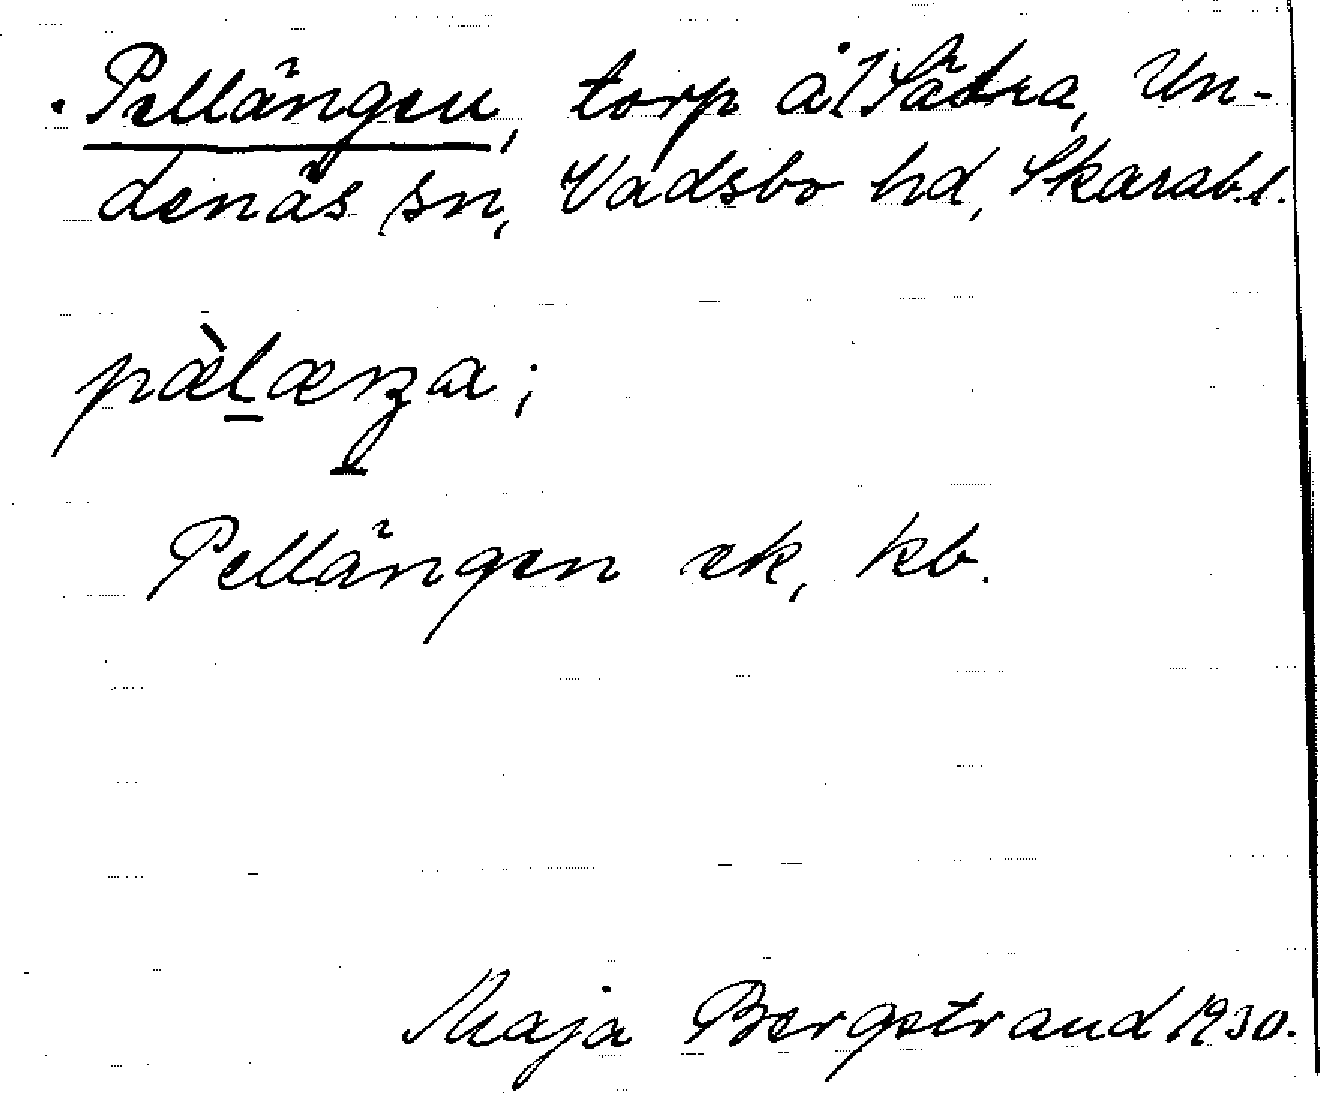 Pellängen, torp å 1 Sätra, Un-
denäs sn, Vadsbo hd, Skarab.l.
pæ̀læŋa;
Pellängen ek, kb.
Maja Bergstrand 1930.